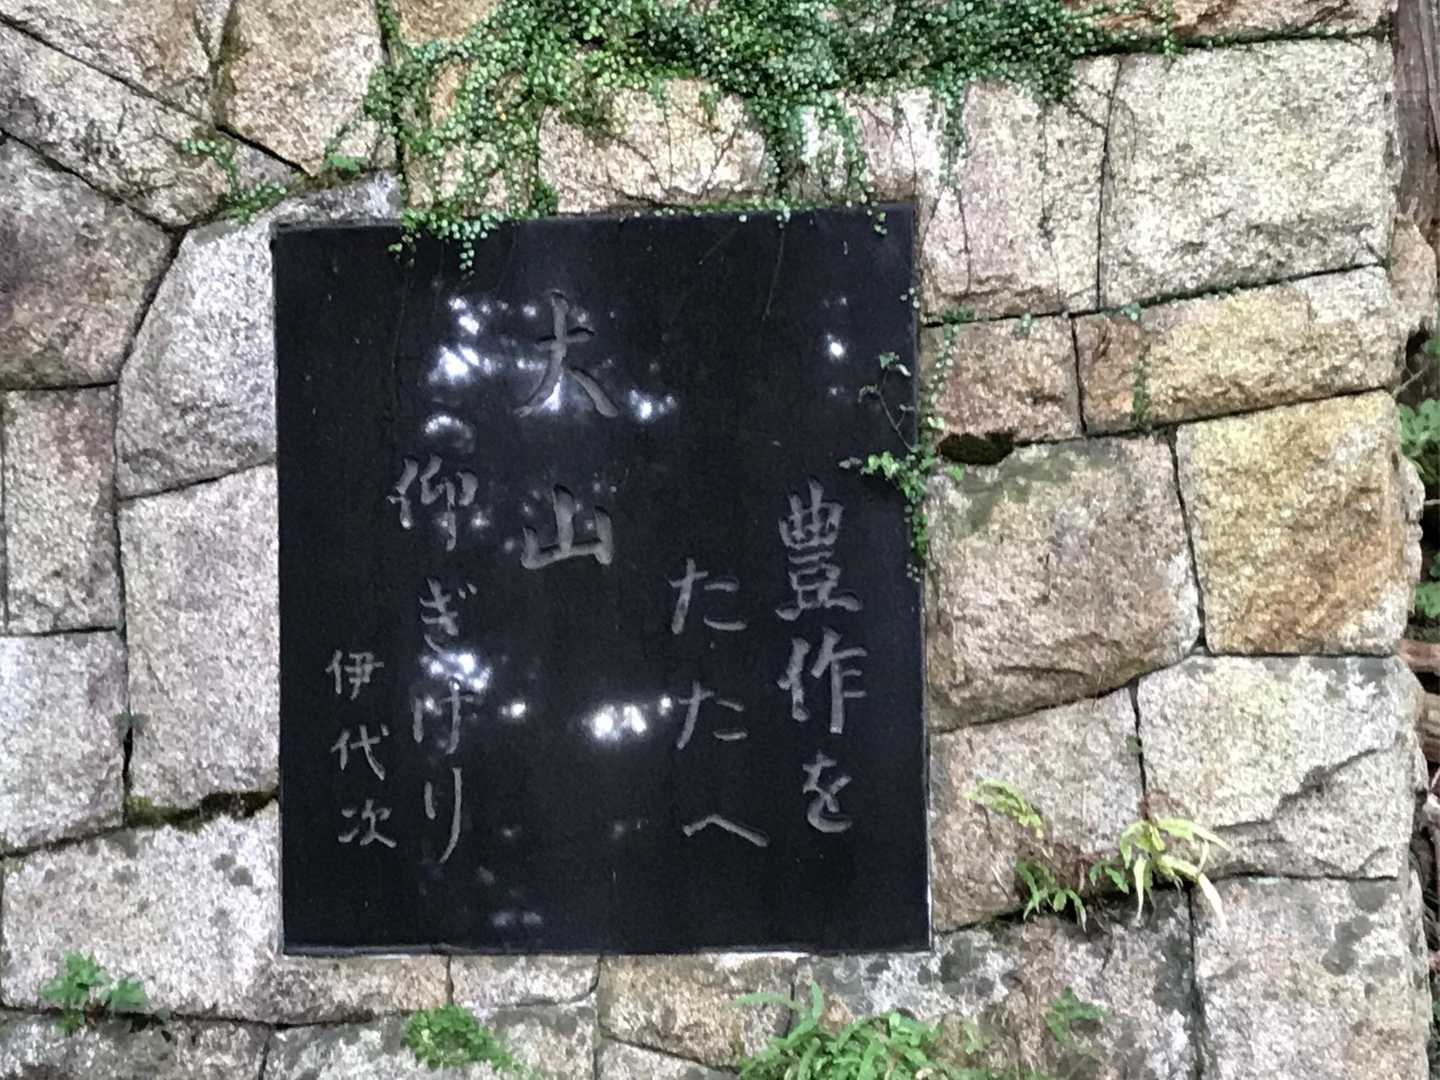 豊作を
たたへ
大山
仰ぎけり
伊代次